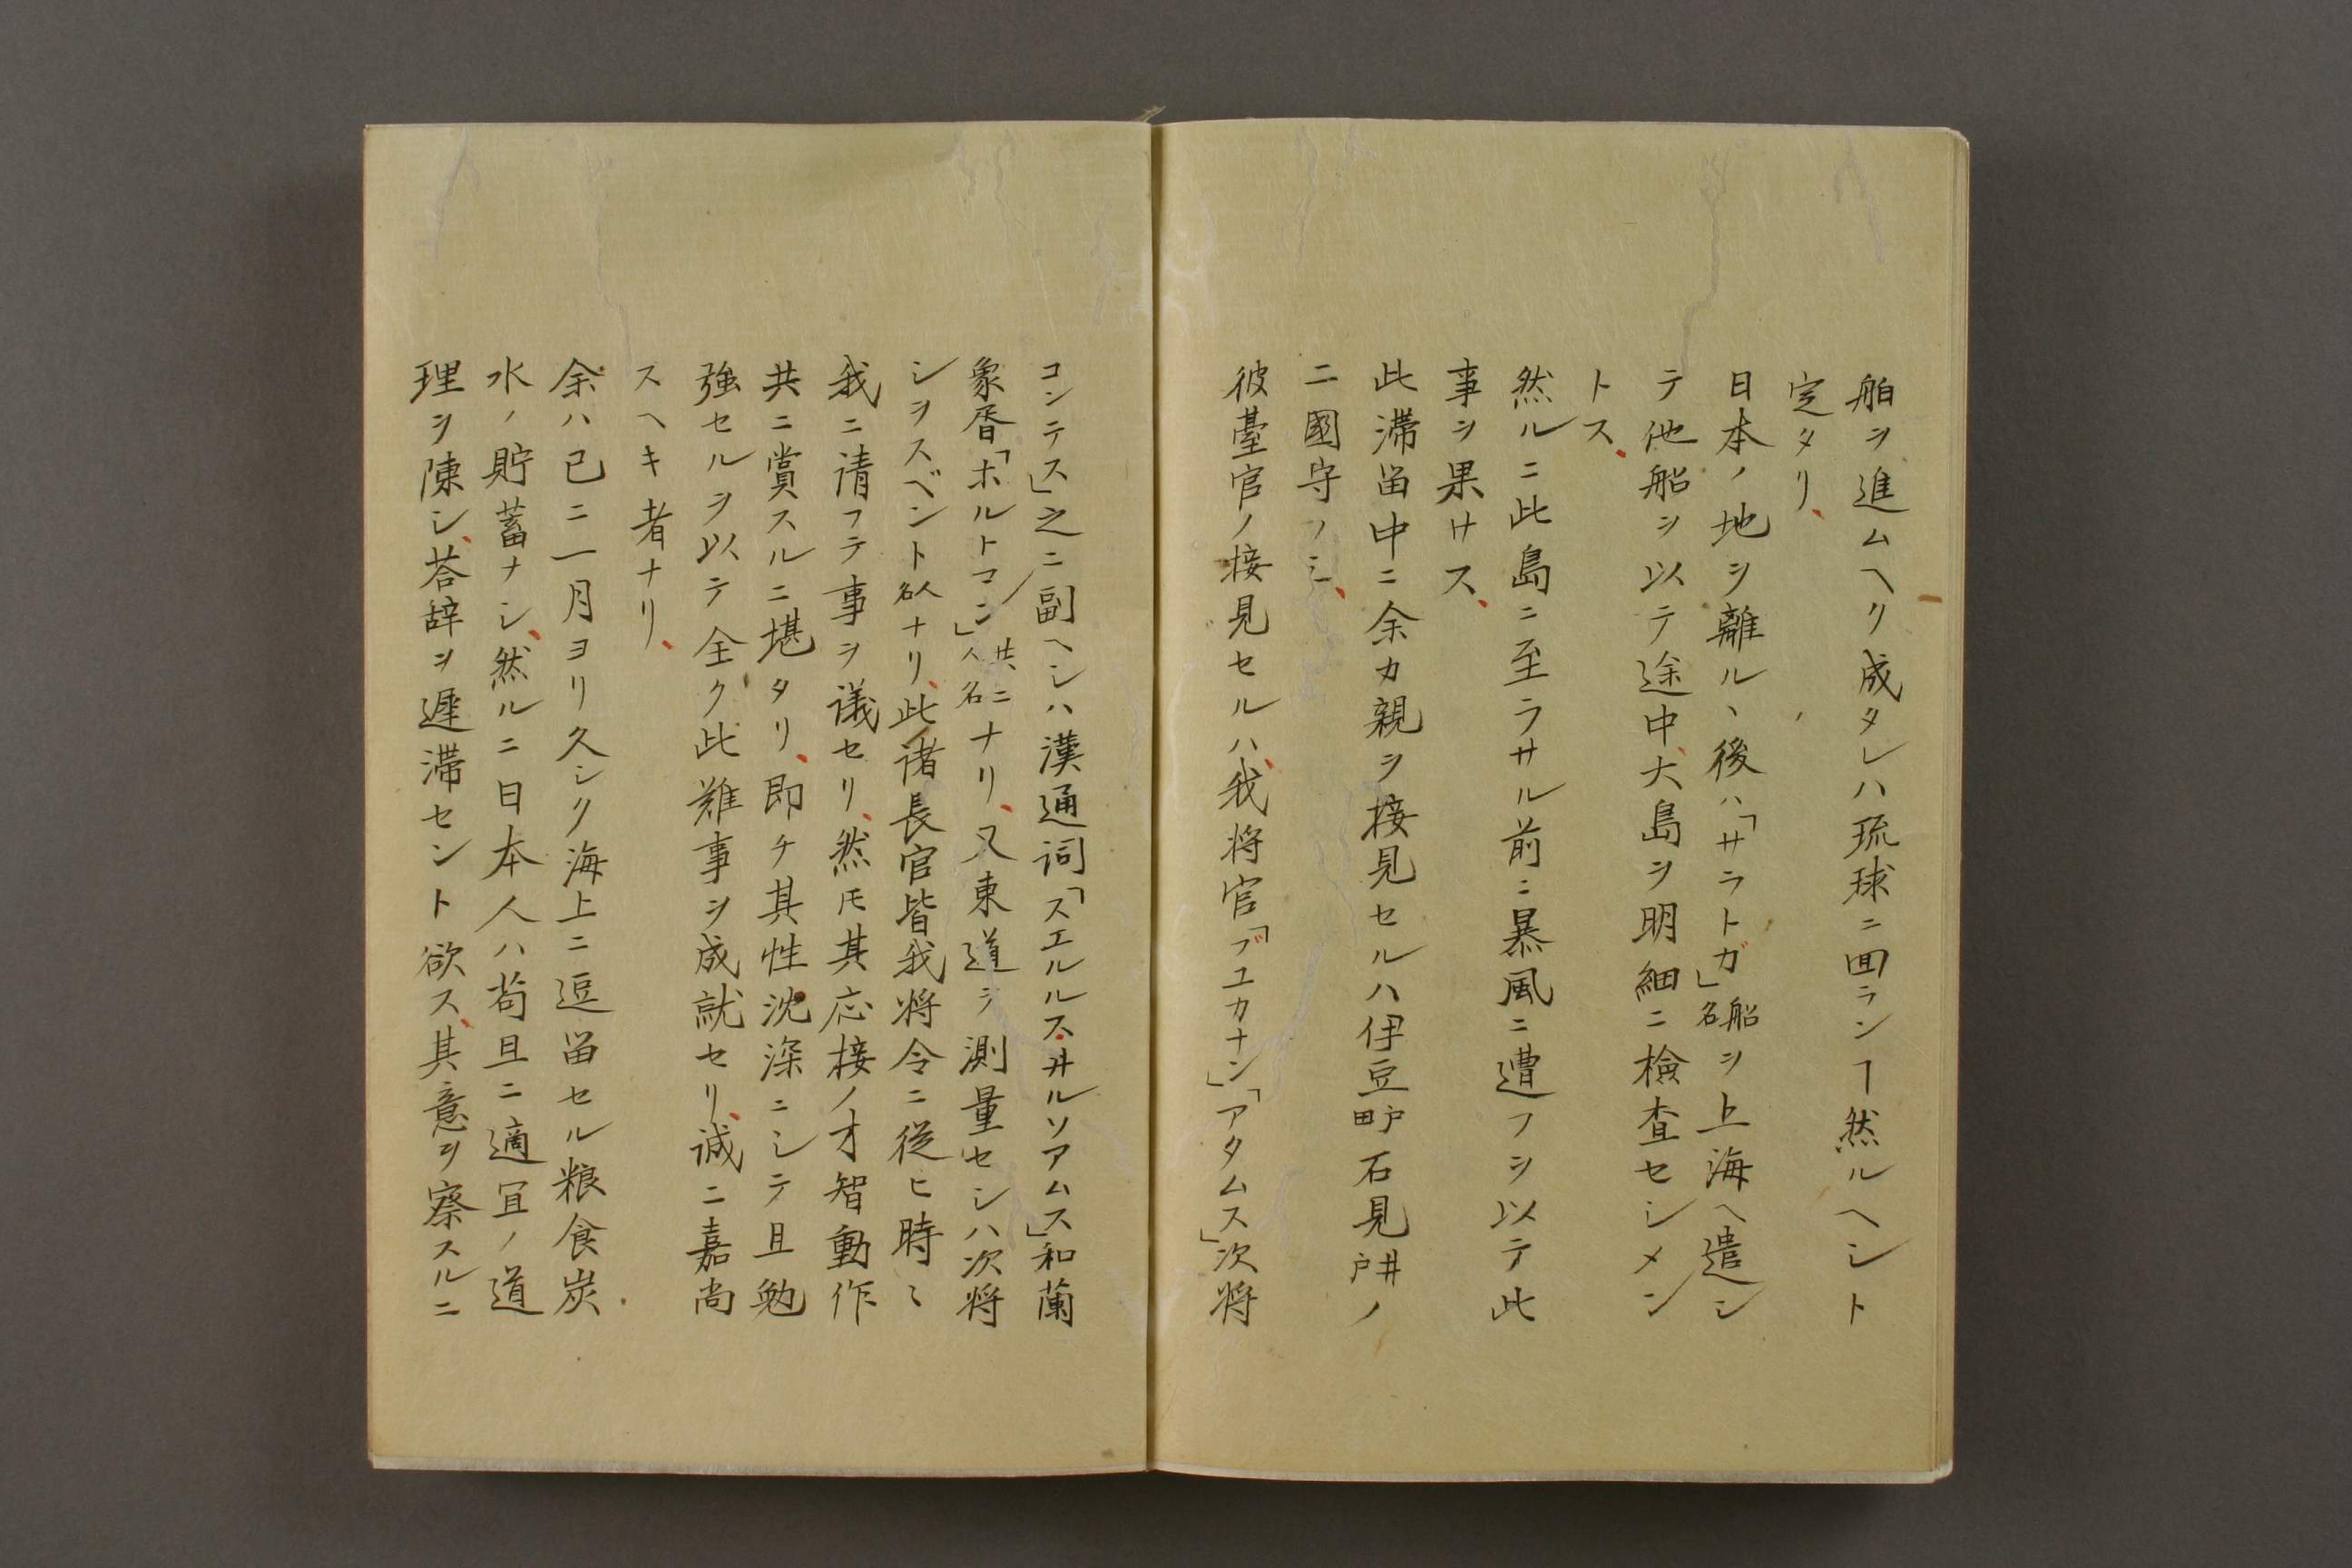 舶ヲ進ムヘク成タレハ琉球ニ回ランヿ然ルヘシト
定タリ、
日本ノ地ヲ離ルヽ後ハ「サラトガ」船名ヲ上海ヘ遣シ
テ他船ヲ以テ途中、大島ヲ明細ニ検査セシメン
トス、
然ルニ此島ニ至ラサル前ニ暴風ニ遭フヲ以テ此
事ヲ果サス、
此滞留中ニ余カ親ヲ接見セルハ伊豆戸田石見井戸ノ
二國守ノミ、
彼臺官ノ接見セルハ、我将官「ブユカナン」「アタムス」次将
コンテス」之ニ副ヘシハ漢通詞「スエルス井ルソアムス」和蘭
象胥「ホルトマン」共ニ人名ナリ、又東道ヲ測量セシハ次将
シヲスベント人名ナリ、此諸長官皆我将令ニ従ヒ時々
我ニ請フテ事ヲ議セリ、然モ其応接ノ才智動作
共ニ賞スルニ堪タリ、即チ其性沈深ニシテ且勉
強セルヲ以テ全ク此難事ヲ成就セリ、誠ニ嘉尚
スヘキ者ナリ、
余ハ已ニ一月ヨリ久シク海上ニ逗留セル粮食炭
水ノ貯蓄ナシ、然ルニ日本人ハ苟且ニ適宜ノ道
理ヲ陳シ、荅辞ヲ遲滞セント欲ス、其意ヲ察スルニ